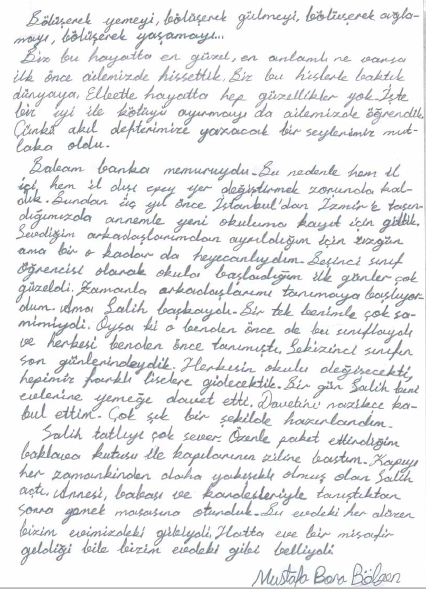 Bölüşerek yemeyi, bölüşerek gülmeyi, bölüşerek ağla-
mayı, bölüşerek yaşamayı...
Biz bu hayatta en güzel, en anlamlı ne varsa
ilk önce ailemizde hissettik. Biz bu hislerle baktık
dünyaya. Elbette hayatta hep güzellikler yok. İşte
biz iyi ile kötüyü ayırmayı da ailemizde öğrendik.
Çünkü akıl defterimize yazacak bir şeylerimiz mut-
laka oldu.
Babam banka memuruydu. Bu nedenle hem il
içi, hem il dışı epey yer değiştirmek zorunda kal-
dık. Bundan üç yıl önce İstanbul'dan İzmir'e taşın-
dığımızda annemle yeni okuluma kayıt için gittik.
Sevdiğim arkadaşlarımdan ayrıldığım için üzgün
ama bir o kadar da heyecanlıydım. Beşinci sınıf
öğrencisi olarak okula başladığım ilk günler çok
güzeldi. Zamanla arkadaşlarımı tanımaya başlıyor-
dum. Ama Salih başkaydı. Bir tek benimle çok sa-
mimiydi. Oysa ki o benden önce de bu sınıftaydı
ve herkesi benden önce tanımıştı. Sekizinci sınıfın
son günlerindeydik. Herkesin okulu değişecekti,
hepimiz farklı liselere gidecektik. Bir gün Salih beni
evlerine yemeğe davet etti. Davetini nazikce ka-
bul ettim. Çok şık bir şekilde hazırlandım.
Salih tatlıyı çok sever. Özenle paket ettirdiğim
baklava kutusu ile kapılarının ziline bastım. Kapıyı
her zamankinden daha yakışıklı olmuş olan Salih
açtı. Annesi, babası ve kardeşleriyle tanıştıktan
sonra yemek masasına oturduk. Bu evdeki her düzen
bizim evimizdeki gibiydi. Hatta eve bir misafir
geldiği bile bizim evdeki gibi belliydi
Mustafa Bora Bölgen